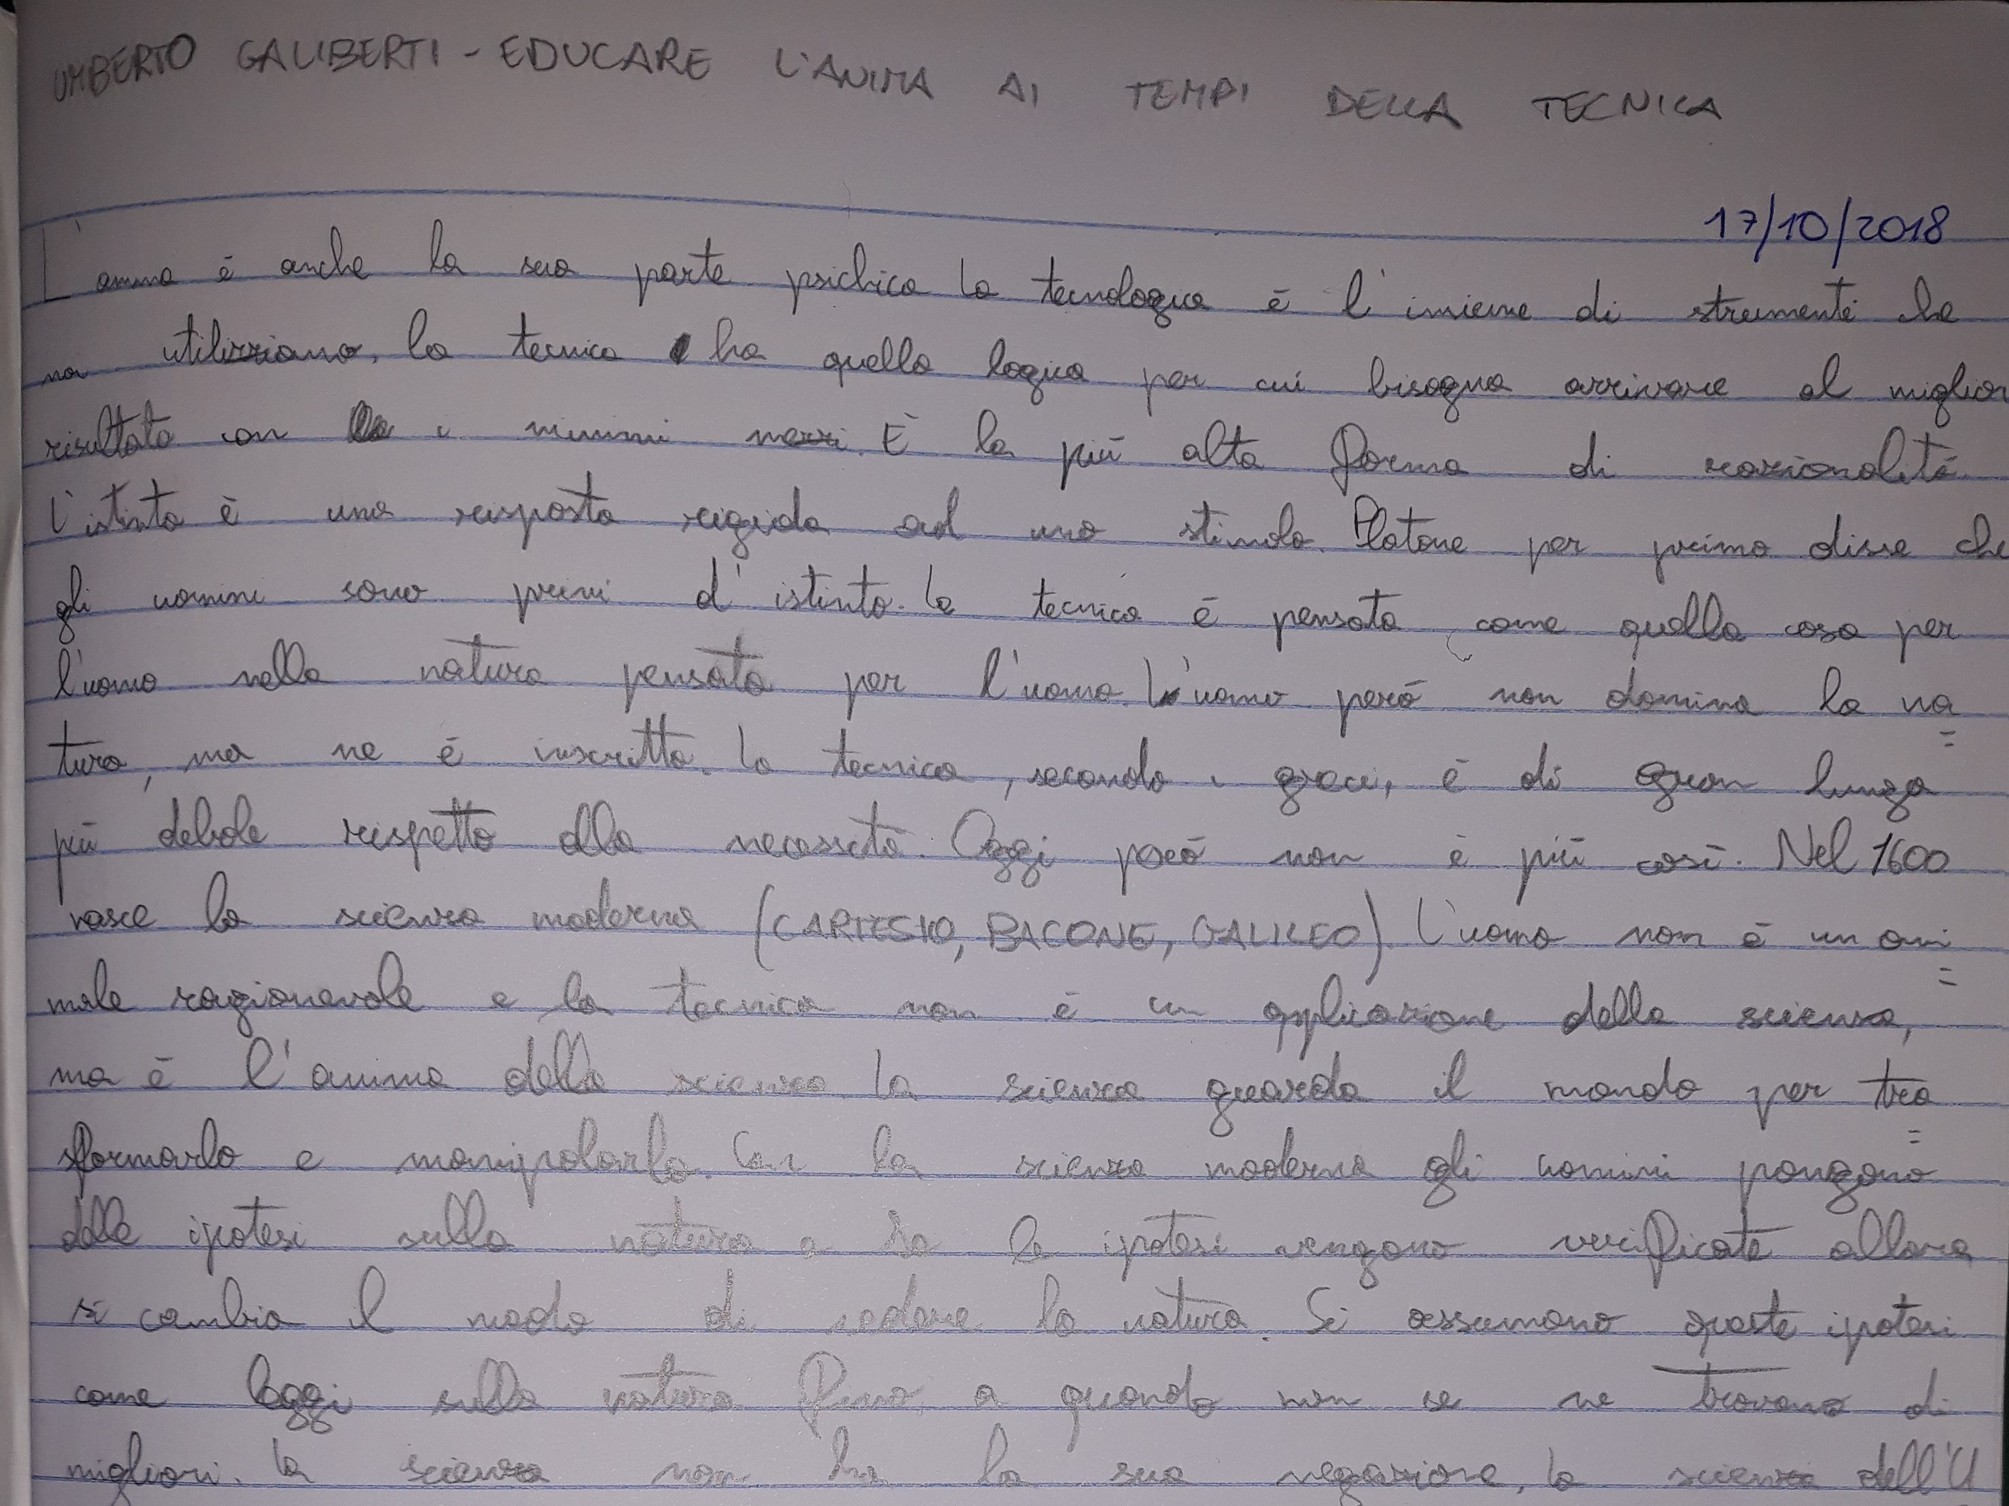 UMBERTO GALIBERTI - EDUCARE L'ANIMA AI TEMPI DELLA TECNICA
17/10/2018
L'anima è anche la sua parte psichica la tecnologia è l'insieme di strumenti che
noi utilizziamo, la tecnica ha quella logica per cui bisogna arrivare al miglior
risultato con i minimi mezzi. È la più alta forma di razionalità
L'istinto è una risposta rigida ad uno stimolo. Platone per primo disse che
gli uomini sono privi d'istinto. La tecnica è pensata come quella cosa per
l'uomo nella natura pensata per l'uomo. L'uomo però non domina la na
tura, ma ne è inscritto. La tecnica, secondo i greci, è di gran lunga
più debole rispetto alla necessità. Oggi però non è più così. Nel 1600
nasce la scienza moderna (CARTESIO, BACONE, GALILEO) L'uomo non è un ani
male ragionevole e la tecnica non è un applicazione della scienza,
ma è l'anima della scienza. La scienza guarda il mondo per tra
sformarlo e manipolarlo. Con la scienza moderna gli uomini pongono
delle ipotesi sulla natura e se le ipotesi vengono verificate allora
si cambia il modo di vedere la natura. Si assumono queste ipotesi
come leggi sulla natura fino a quando non se ne trovano di
migliori. La scienza non ha la sua negazione, la scienza dell'U